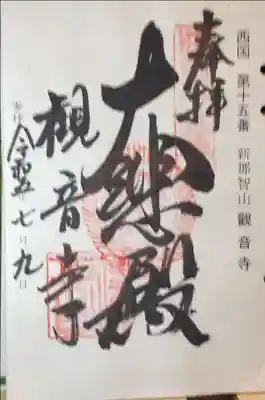 西国 第十五番 新那智山 觀音寺
奉拝
大悲殿
観音寺
令和五年七月九日